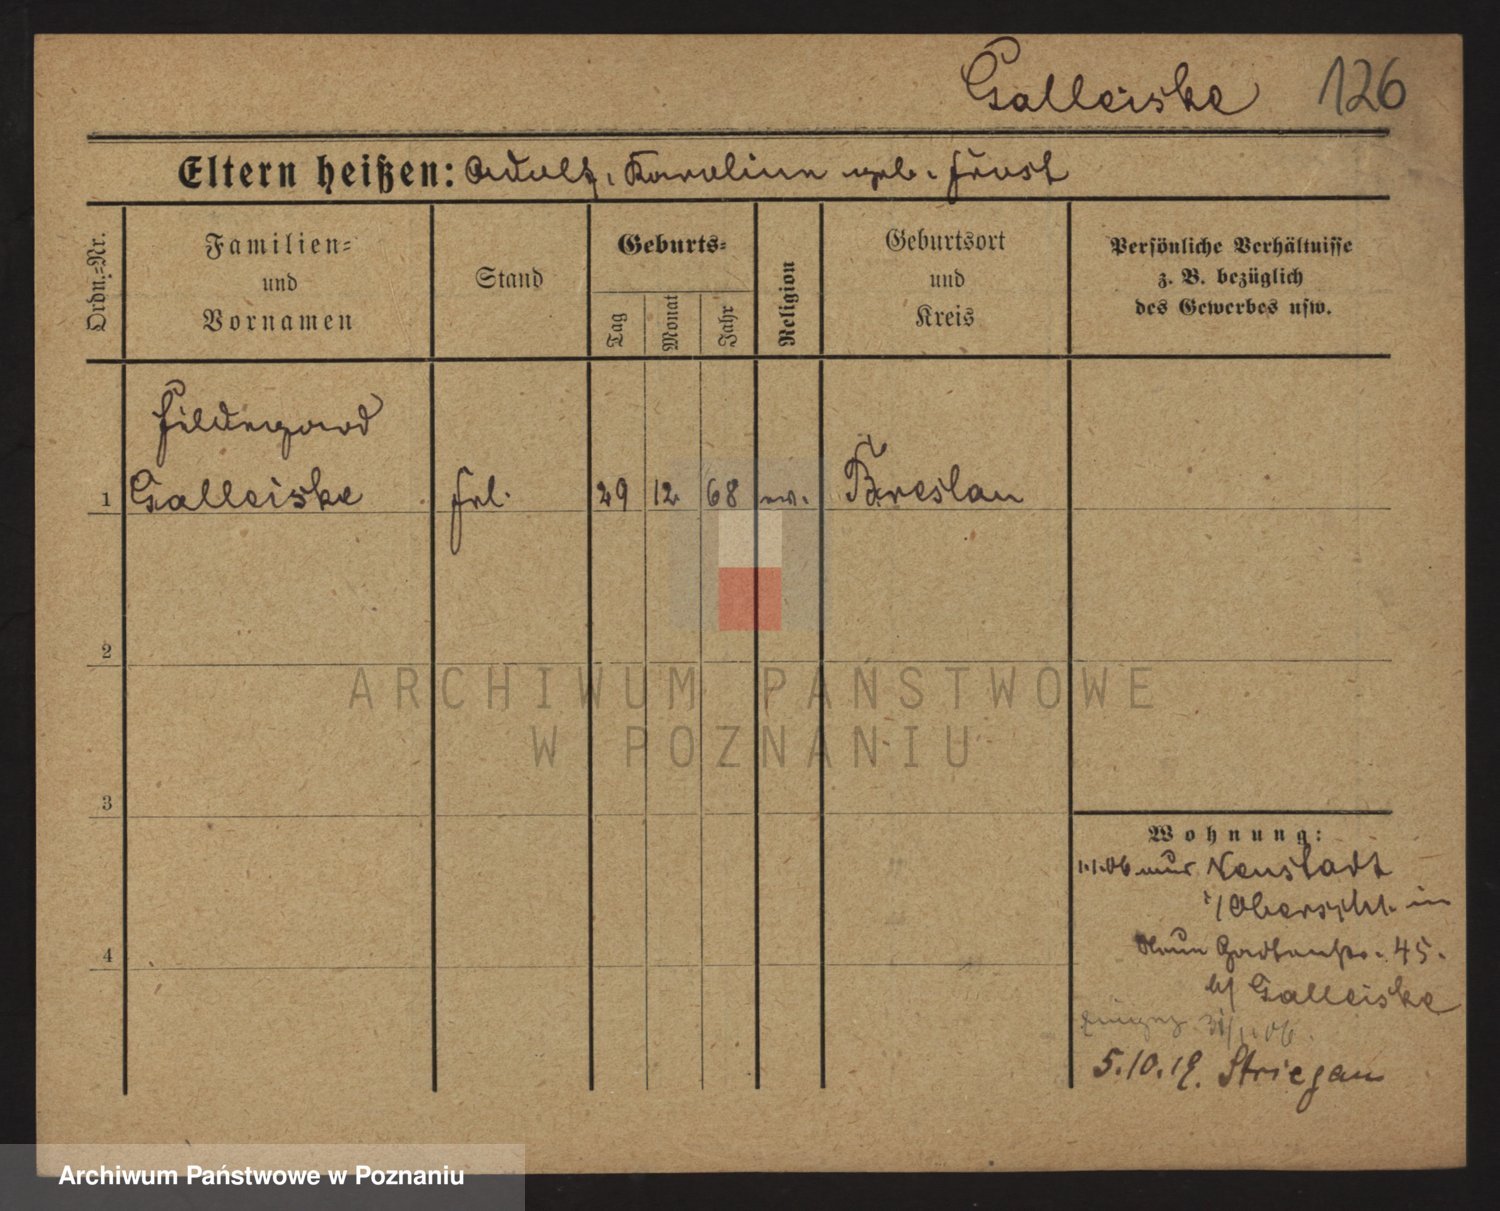 Galleiske 126
Eltern heißen: Adolf, Karoline geb. Frost
Ordn.=Nr.
Familien=
und
Vornamen
Stand
Geburts=
Tag
Monat
Jahr
Religion
Geburtsort
und
Kreis
Persönliche Verhältnisse
z. B. bezüglich
des Gewerbes usw.
Hildegard
1 Galleiske Frl. 29 12 68 ev. Breslau
2
3
4
Wohnung:
1.1.06 aus Neustadt
i/Oberschl. in
45.
b/ Galleiske
5.10.19. Striegau
ARCHIWUM PAŃSTWOWE
W POZNANIU
Archiwum Państwowe w Poznaniu